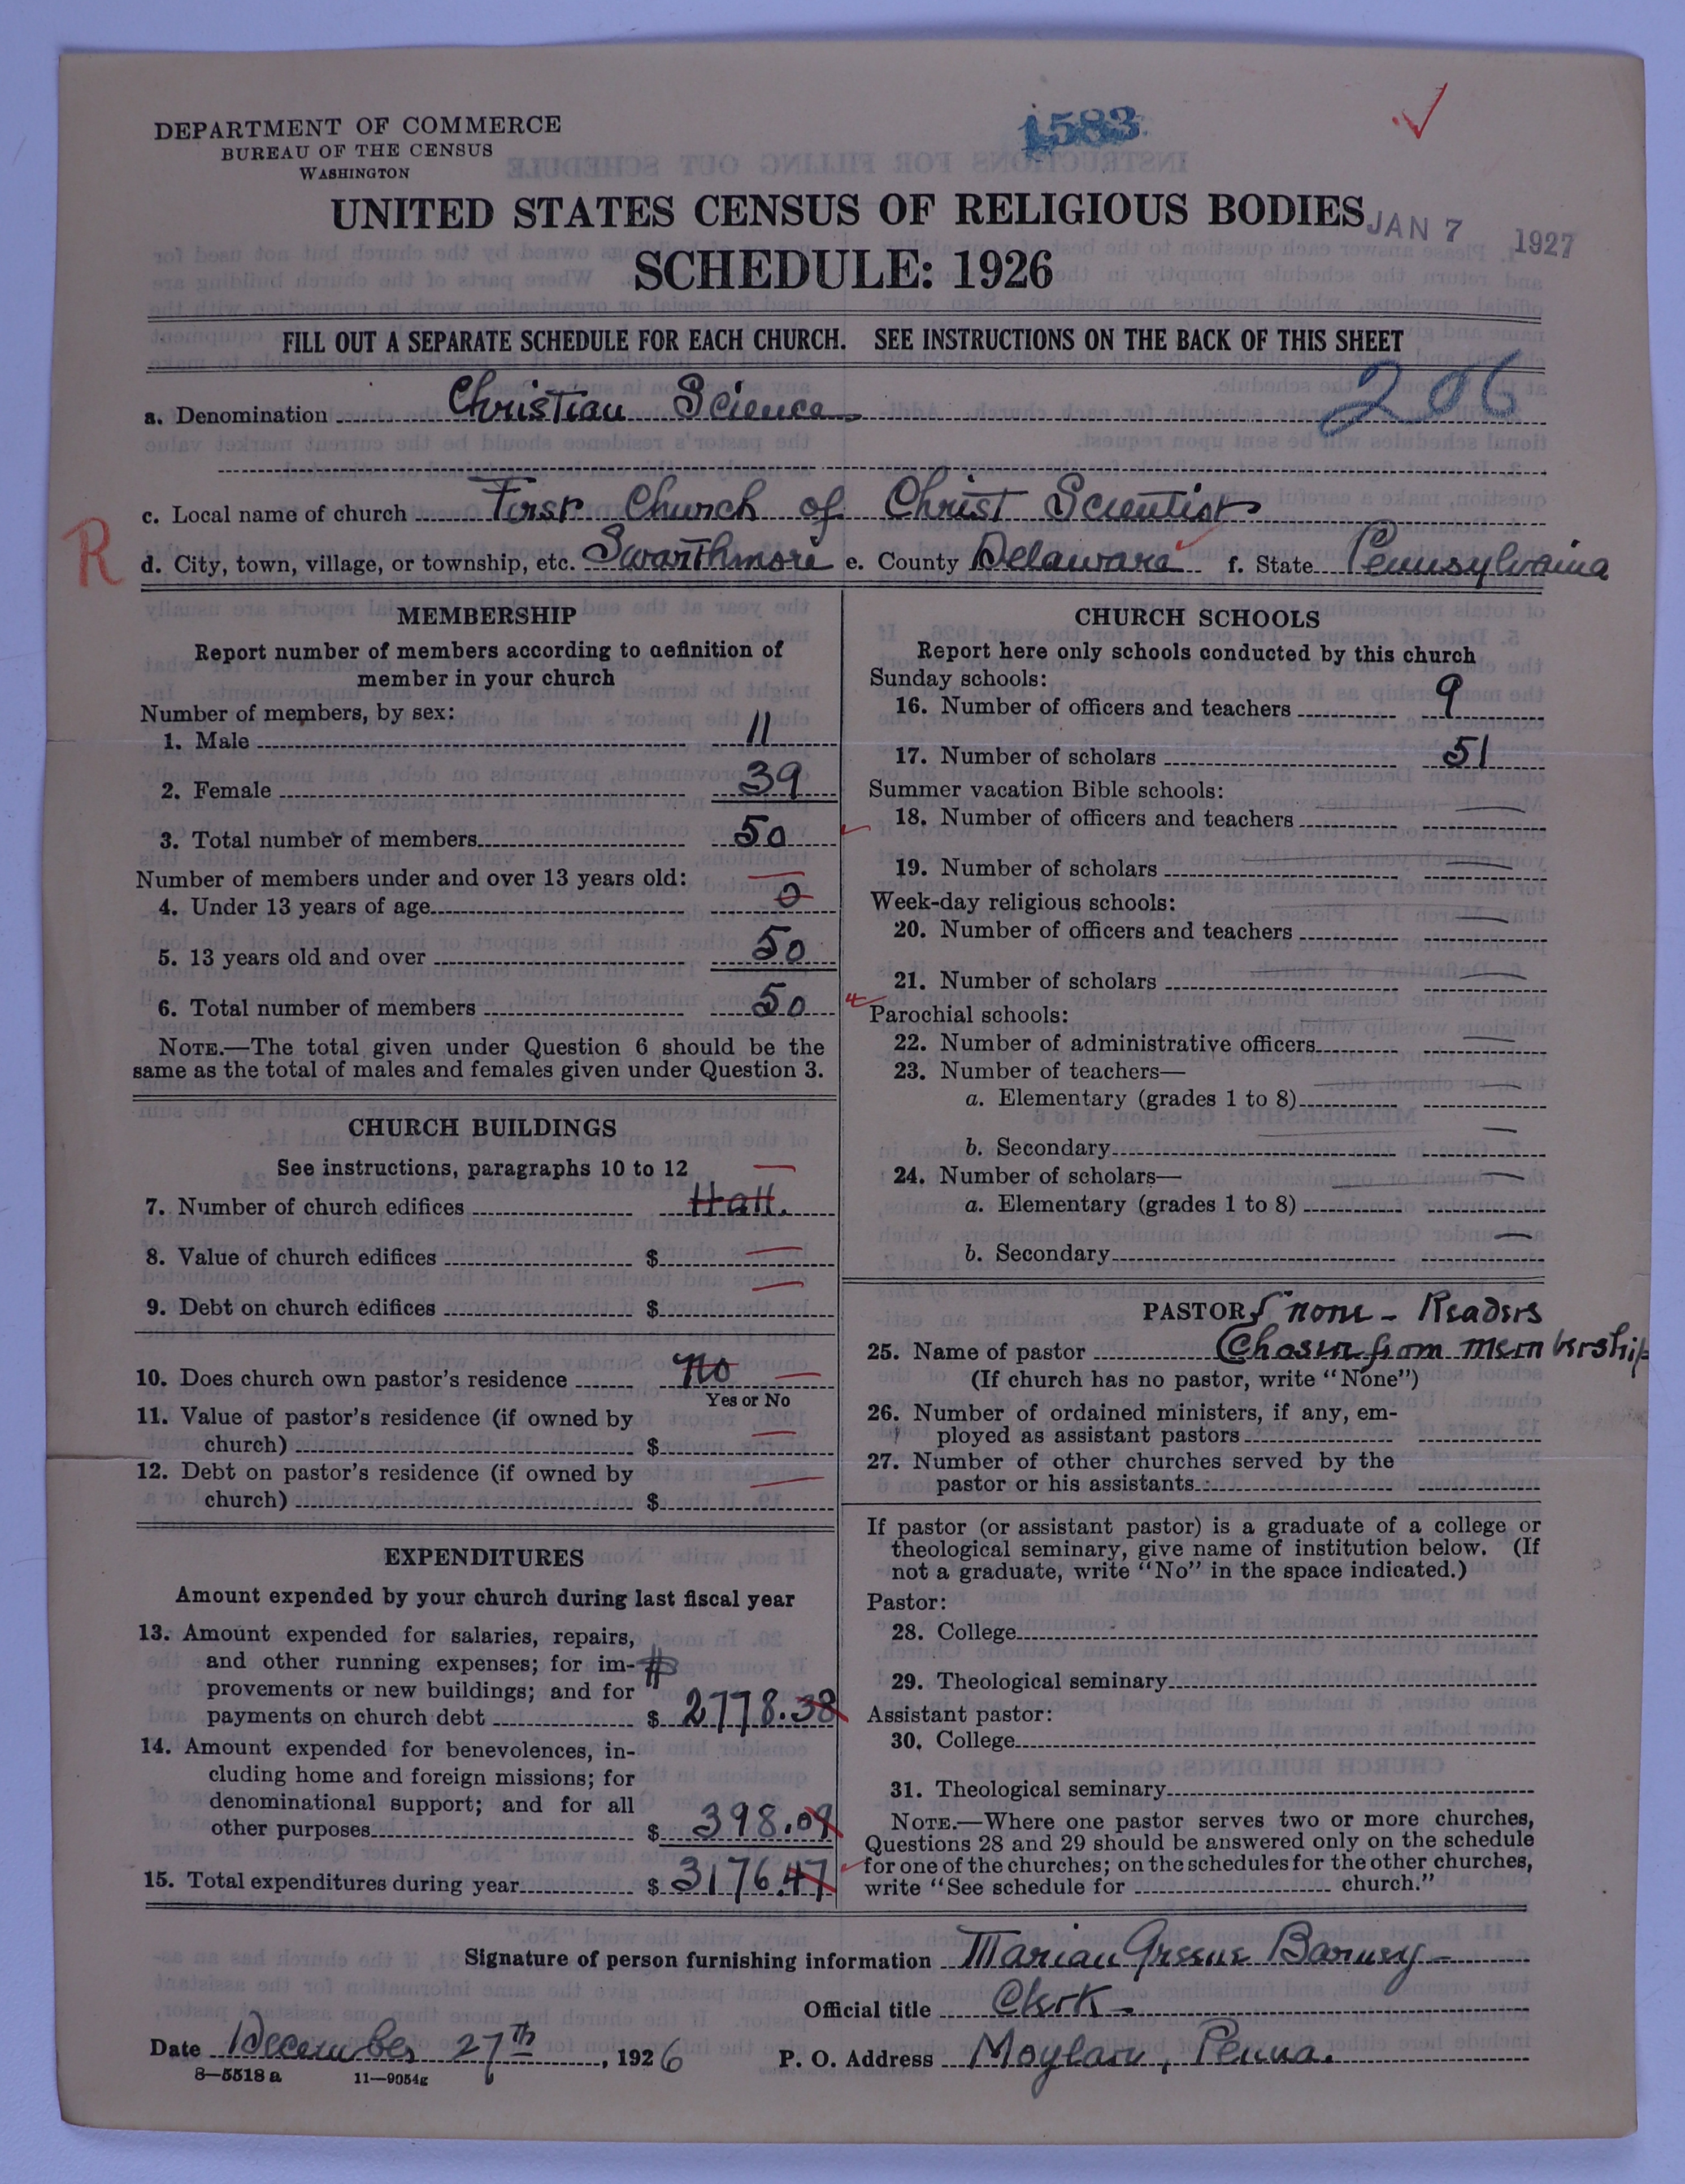 DEPARTMENT OF COMMERCE
BUREAU OF THE CENSUS
WASHINGTON
1583
UNITED STATES CENSUS OF RELIGIOUS BODIES
JAN 7 1927
SCHEDULE: 1926
FILL OUT A SEPARATE SCHEDULE FOR EACH CHURCH. SEE INSTRUCTIONS ON THE BACK OF THIS SHEET
206
a. Denomination Christian Science
c. Local name of church First Church of Christ Scientist
R
d. City, town, village, or township, etc. Swarthmore e. County Delaware f. State Pennsylvania
MEMBERSHIP
Report number of members according to definition of
member in your church
Number of members, by sex:
1. Male 11
2. Female 39
3. Total number of members 50
Number of members under and over 13 years old:
4. Under 13 years of age 0
5. 13 years old and over 50
6. Total number of members 50
NOTE.—The total given under Question 6 should be the
same as the total of males and females given under Question 3.
CHURCH BUILDINGS
See instructions, paragraphs 10 to 12
7. Number of church edifices Hall.
8. Value of church edifices $
9. Debt on church edifices $
10. Does church own pastor's residence No
Yes or No
11. Value of pastor's residence (if owned by
church) $
12. Debt on pastor's residence (if owned by
church) $
EXPENDITURES
Amount expended by your church during last fiscal year
13. Amount expended for salaries, repairs,
and other running expenses; for im-
provements or new buildings; and for
payments on church debt $ 2778.38
14. Amount expended for benevolences, in-
cluding home and foreign missions; for
denominational support; and for all
other purposes $ 398.09
15. Total expenditures during year $ 3176.47
CHURCH SCHOOLS
Report here only schools conducted by this church
Sunday schools:
16. Number of officers and teachers 9
17. Number of scholars 51
Summer vacation Bible schools:
18. Number of officers and teachers —
19. Number of scholars —
Week-day religious schools:
20. Number of officers and teachers —
21. Number of scholars —
Parochial schools:
22. Number of administrative officers —
23. Number of teachers—
a. Elementary (grades 1 to 8) —
b. Secondary —
24. Number of scholars—
a. Elementary (grades 1 to 8) —
b. Secondary —
PASTOR { none - Readers
25. Name of pastor Chosen from membership
(If church has no pastor, write "None")
26. Number of ordained ministers, if any, em-
ployed as assistant pastors
27. Number of other churches served by the
pastor or his assistants
If pastor (or assistant pastor) is a graduate of a college or
theological seminary, give name of institution below. (If
not a graduate, write "No" in the space indicated.)
Pastor:
28. College
29. Theological seminary
Assistant pastor:
30. College
31. Theological seminary
NOTE.—Where one pastor serves two or more churches,
Questions 28 and 29 should be answered only on the schedule
for one of the churches; on the schedules for the other churches,
write "See schedule for church."
Signature of person furnishing information Marian Greene Barney
Official title Clerk
Date December 27th, 1926 P. O. Address Moylan, Penna.
8—5518 a 11—9054g